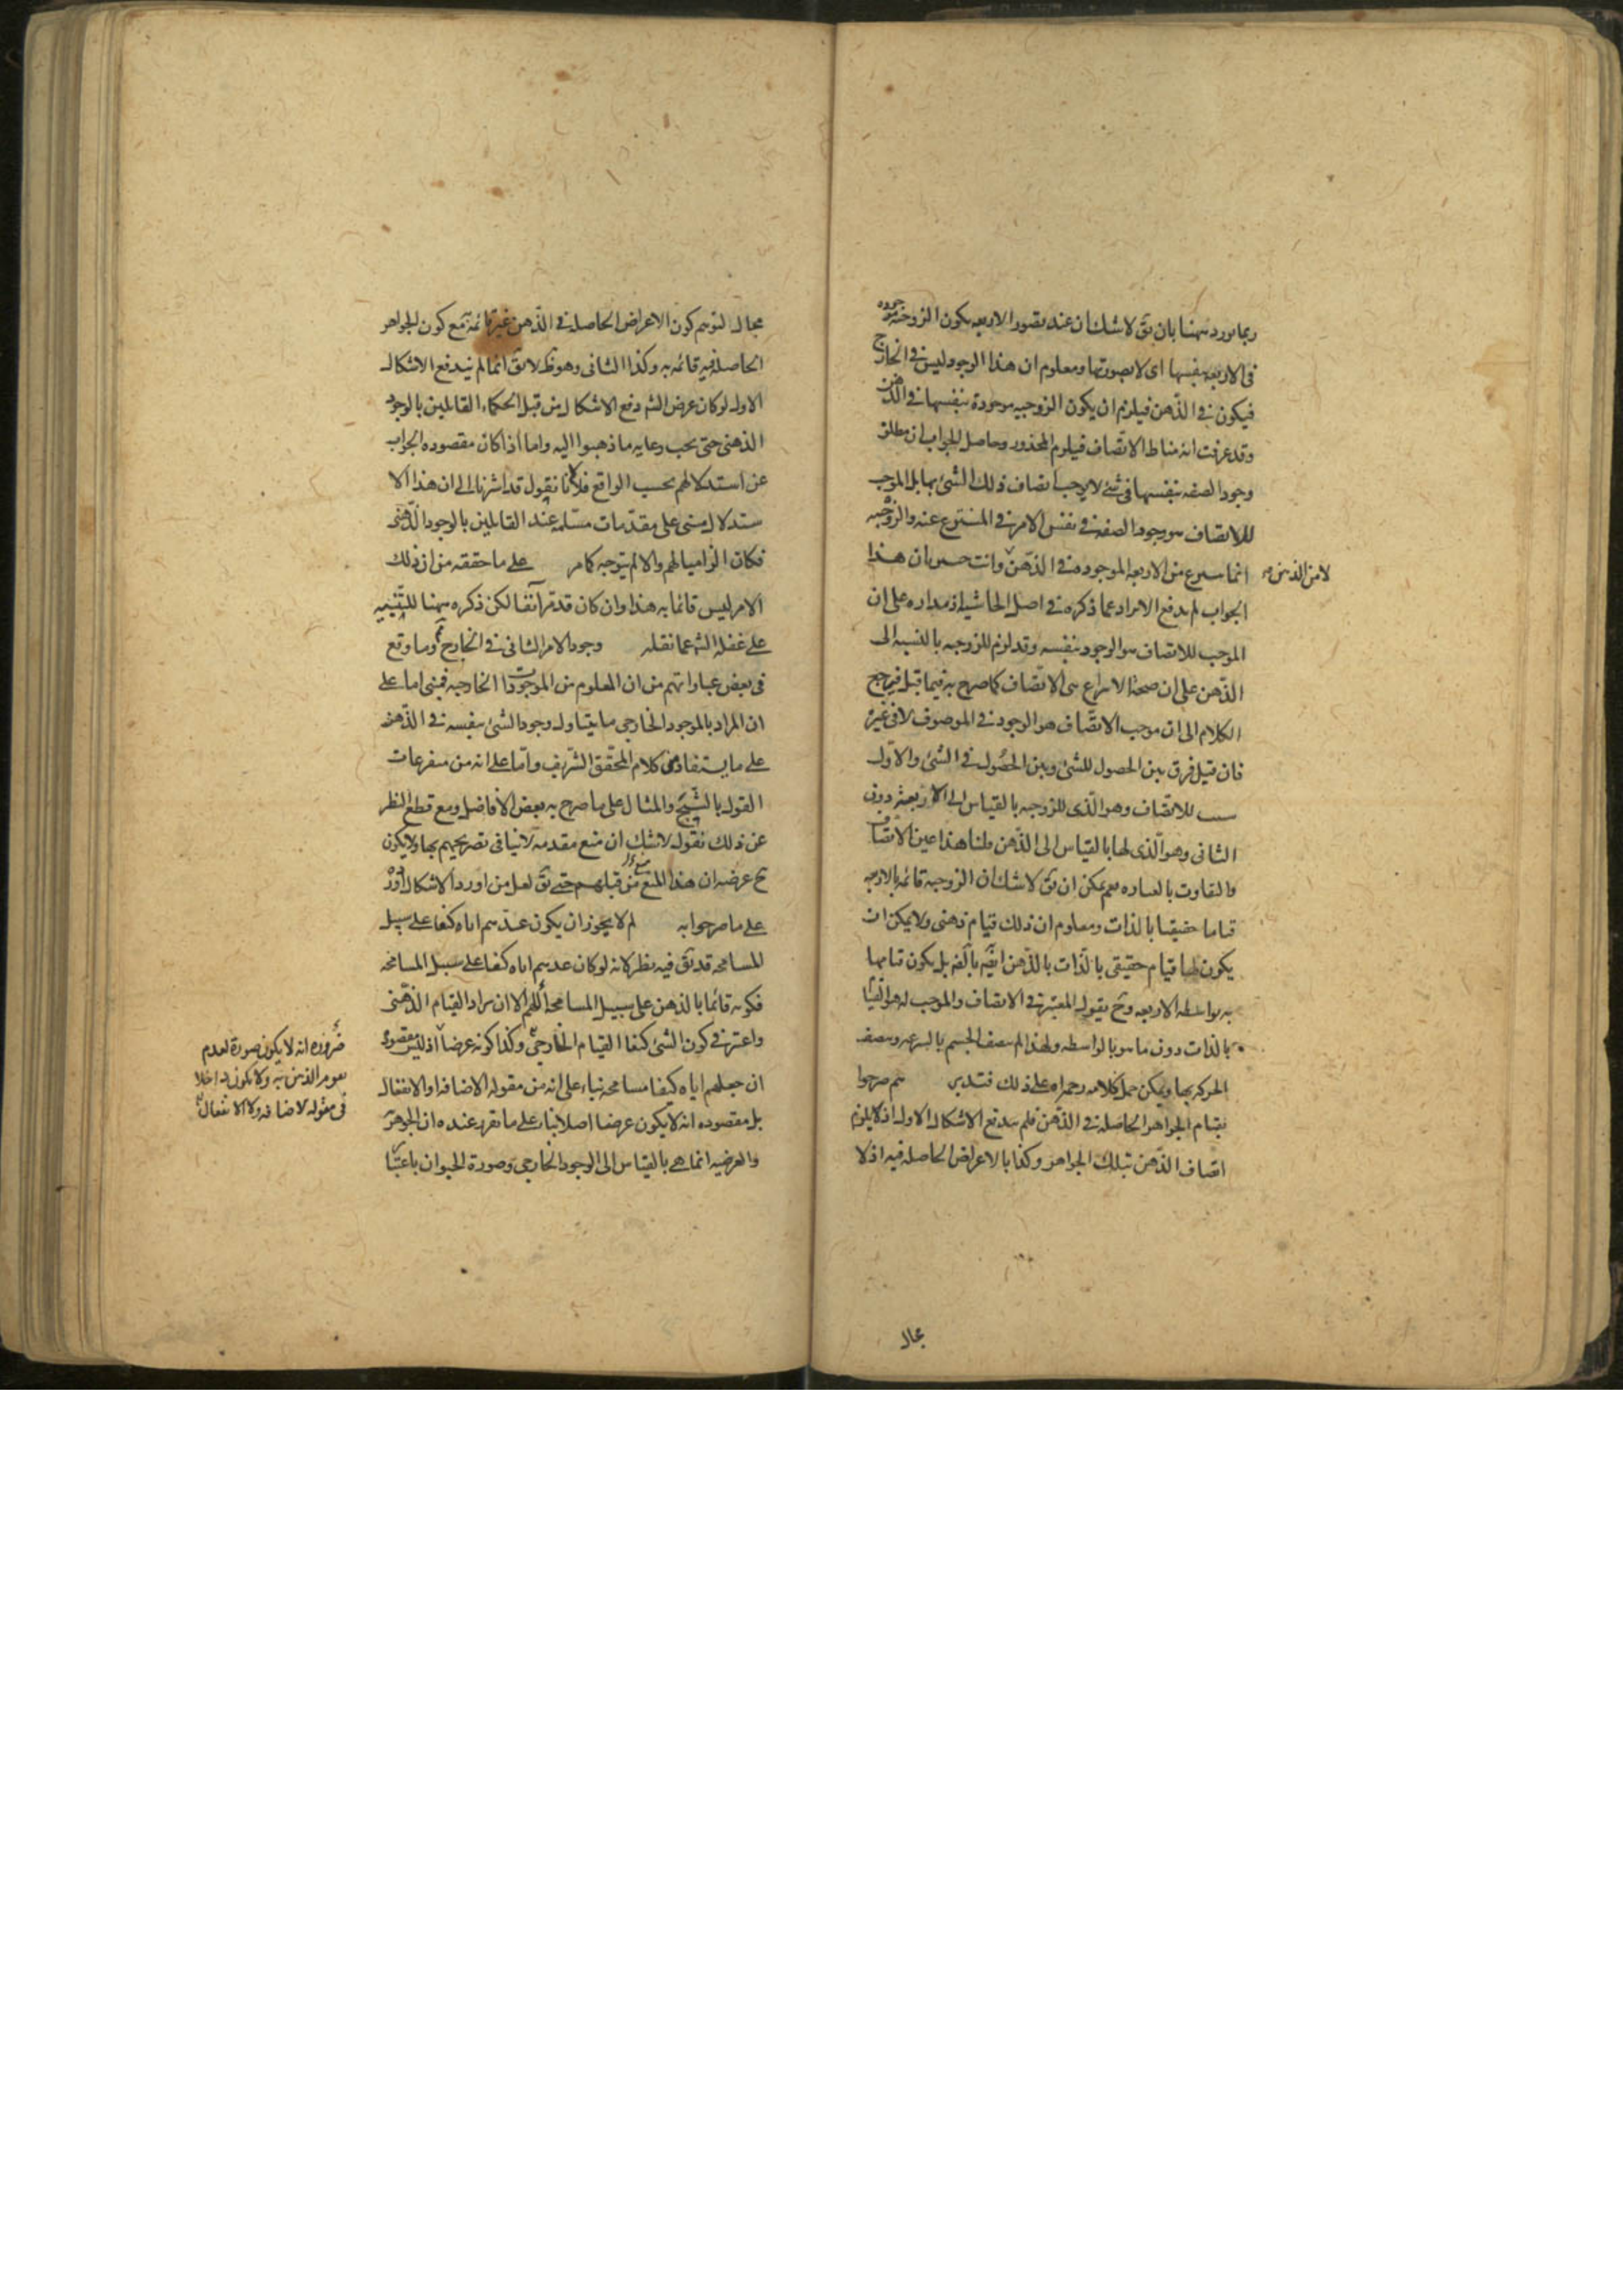 ربما يورد ههنا بان يق لا شك ان عند تصور الاربعه يكون الزوجيه موجوده
فى الاربعه بنفسها اى لا بصورتها ومعلوم ان هذا الوجود ليس فى الخارج
فيكون فى الذهن فيلزم ان يكون الزوجيه موجودة بنفسها فى الذهن
وقد عرفت انه مناط الاتصاف فيلزم المحذور وحاصل الجواب ان مطلق
وجود الصفه بنفسها فى شئ لا يوجب اتصاف ذلك الشئ بها بل الموجب
للاتصاف هو وجود الصفه فى نفس الامر فى المنتزع عنه والزوجيه
انما ينتزع من الاربعه الموجوده فى الذهن وانت خبير بان هذا
لا من الذهن صح
الجواب لم يدفع الايراد عما ذكره فى اصل الحاشيه اذ مداره على ان
الموجب للاتصاف هو الوجود بنفسه وقد لزم للزوجيه بالنسبه الى
الذهن على ان صحة الانتزاع هى الاتصاف كما صرح به فيما قبل فيرجع
الكلام الى ان موجب الاتصاف هو الوجود فى الموصوف لا فى غيره
فان قيل فرق بين الحصول للشئ وبين الحصول فى الشئ والاول
سبب للاتصاف وهو الذى للزوجيه بالقياس الى الاربعة دون
الثانى وهو الذى لها بالقياس الى الذهن قلنا هذا عين الاتصاف
والتفاوت بالعباره نعم يمكن ان يق لا شك ان الزوجيه قائمه بالاربعه
قياما حقيقيا بالذات ومعلوم ان ذلك قيام ذهنى ولا يمكن ان
يكون لها قيام حقيقى بالذات بالذهن بل يكون قيامها
به بواسطه الاربعه وح يقول المعتبر فى الاتصاف والموجب له هو القيام
بالذات دون ما هو بالواسطه ولهذا لم يتصف الجسم بالسرعه ويتصف
الحركه بها ويمكن حمل كلامه رحمه الله على ذلك فتدبر هم صرحوا
بقيام الجواهر الحاصله فى الذهن فلم يندفع الاشكال الاول اذ لا يلزم
اتصاف الذهن بتلك الجواهر وكذا بالاعراض الحاصله فيه اذ لا
مجال
مجال لتوهم كون الاعراض الحاصله فى الذهن غير قائمة مع كون الجواهر
الحاصله فيه قائمه به وكذا الثانى وهو ظ لا يق انما لم يندفع الاشكال
الاول لو كان غرض الشه دفع الاشكال من قبل الحكماء القائلين بالوجود
الذهنى حتى يجب رعايه ما ذهبوا اليه واما اذا كان مقصوده الجواب
عن استدلالهم بحسب الواقع فلا لانا نقول قد اشرنا الى ان هذا الا
ستدلال مبنى على مقدمات مسلمه عند القائلين بالوجود الذهنى
فكان الزاميا لهم والا لم يتوجه كما مر على ما حققه من ان ذلك
الامر ليس قائما به هذا وان كان قد مر آنفا لكن ذكره ههنا للتنبيه
على غفلة الشه عما نقله وجود الامر الثانى فى الخارج وما وقع
فى بعض عباراتهم من ان المعلوم من الموجودات الخارجيه فمبنى اما على
ان المراد بالموجود الخارجى ما يتناول وجود الشئ بنفسه فى الذهن
على ما يستفاد من كلام المحقق الشريف واما على انه من متفرعات
القول بالشبح والمثال على ما صرح به بعض الافاضل ومع قطع النظر
عن ذلك نقول لا شك ان منع مقدمه لا ينافى تصريحهم بها ولا يكون
ح غرضه ان هذا المنع من قبلهم حتى يق لعل من اورد الاشكال اورد
على ما صرحوا به لم لا يجوز ان يكون عدهم اياه كيفا على سبيل
المسامحه قد يق فيه نظر لانه لو كان عدهم اياه كيفا على سبيل المسامحه
فكونه قائما بالذهن على سبيل المسامحه اللهم الا ان يراد القيام الذهنى
واعتبر فى كون الشئ كيفا القيام الخارجى وكذا كونه عرضا اذ ليس مقصوده
ان جعلهم اياه كيفا مسامحه بناء على انه من مقوله الاضافه او الانفعال
بل مقصوده انه لا يكون عرضا اصلا بناء على ما تقرر عنده ان الجوهريه
والعرضيه انما هى بالقياس الى الوجود الخارجى وصورة الحيوان باعتبار
ضروره انه لا يكون صورة لعدم
الذهن به ولا يكون داخلا
فى مقوله الاضافه ولا الانفعال